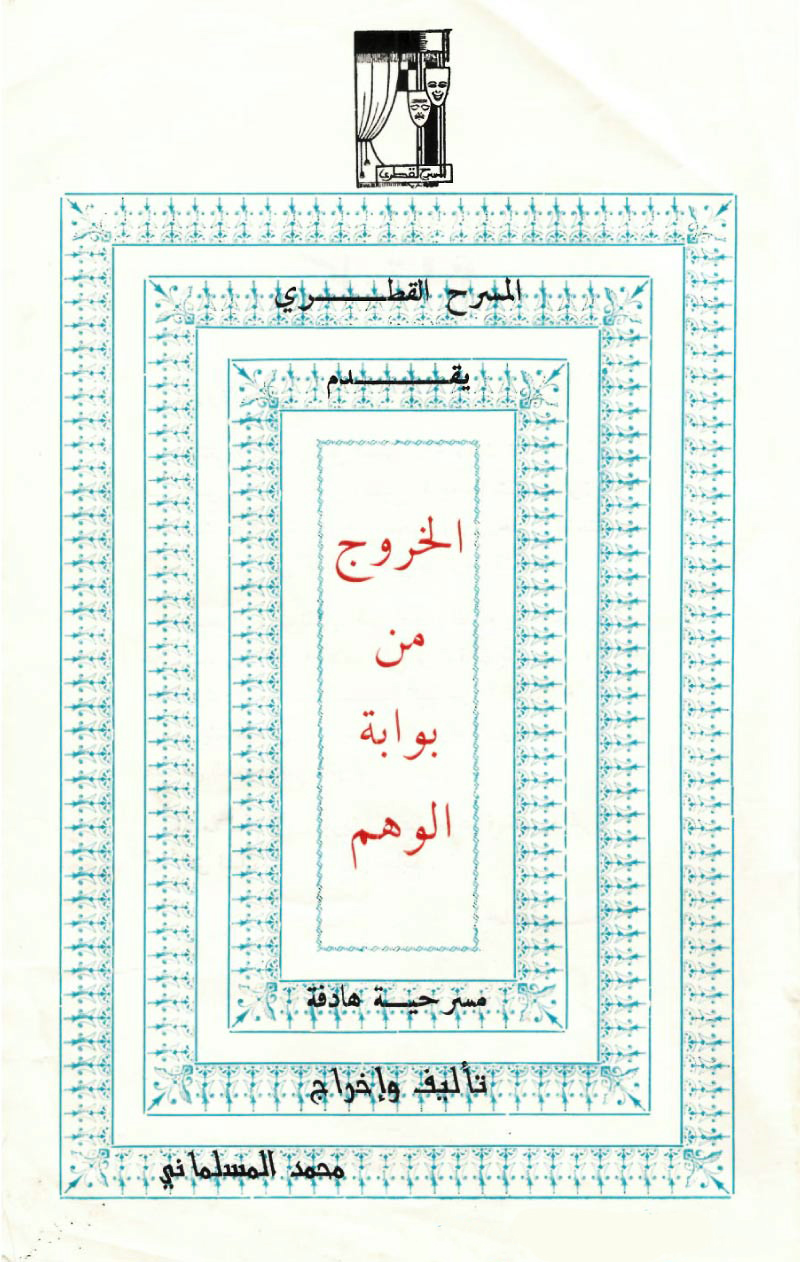 المسرح القطري
المسرح القطـــــــري
يقـــــــدم
الخروج
من
بوابة
الوهم
مسرحيـــة هادفة
تأليف وإخراج
محمد المسلماني